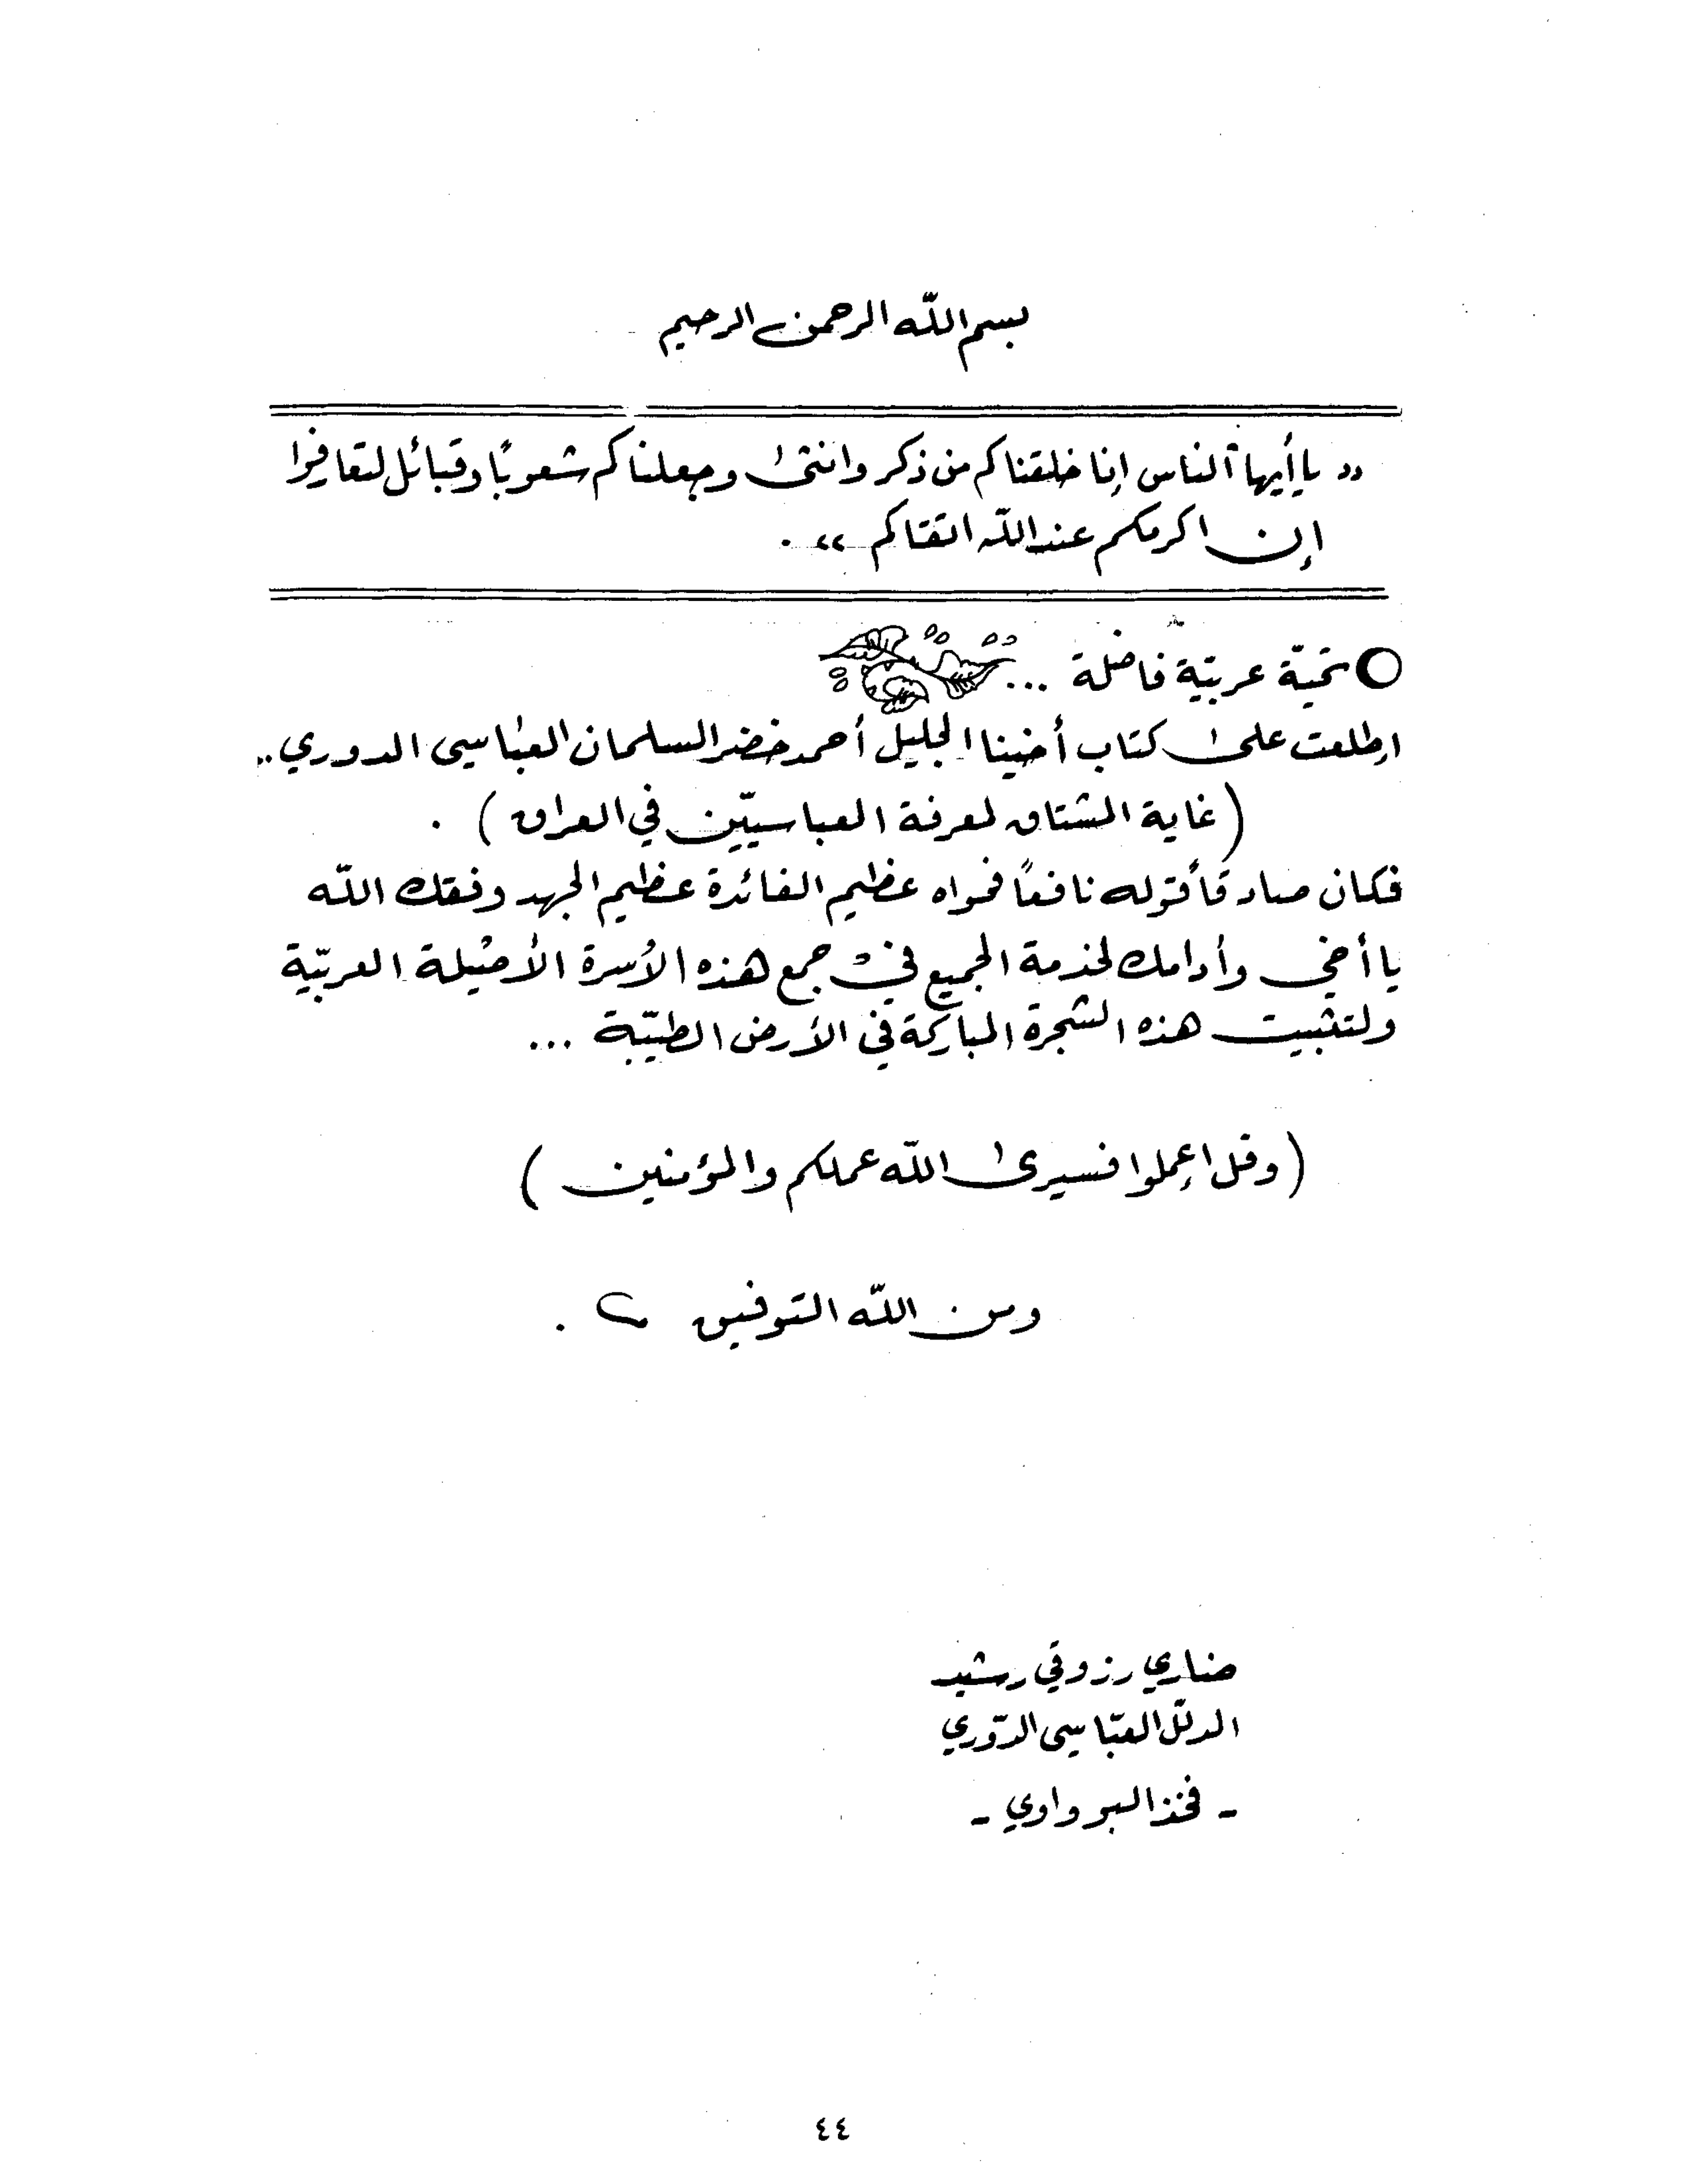 بسم الله الرحمن الرحيم
“ يا أيها الناس إنا خلقناكم من ذكر وانثى وجعلناكم شعوبًا وقبائل لتعارفوا
إن اكرمكم عند الله اتقاكم ” .
تحيّة عربيّة فاضلة ...
اطلعت على كتاب أخينا الجليل أحمد خضر السلمان العباسي الدوري ..
( غاية المشتاق لمعرفة العباسيّين في العراق ) .
فكان صادقاً قوله نافعاً فحواه عظيم الفائدة عظيم الجهد وفقك الله
يا أخي وأدامك لخدمة الجميع في جمع هذه الأسرة الأصيلة العربيّة
ولتثبيت هذه الشجرة المباركة في الأرض الطيّبة ...
( وقل إعملوا فسيرى الله عملكم والمؤمنين )
ومن الله التوفيق .
رزوقي رشيد
العبّاسي الدّوري
- فخذ البو واوي -
٤٤